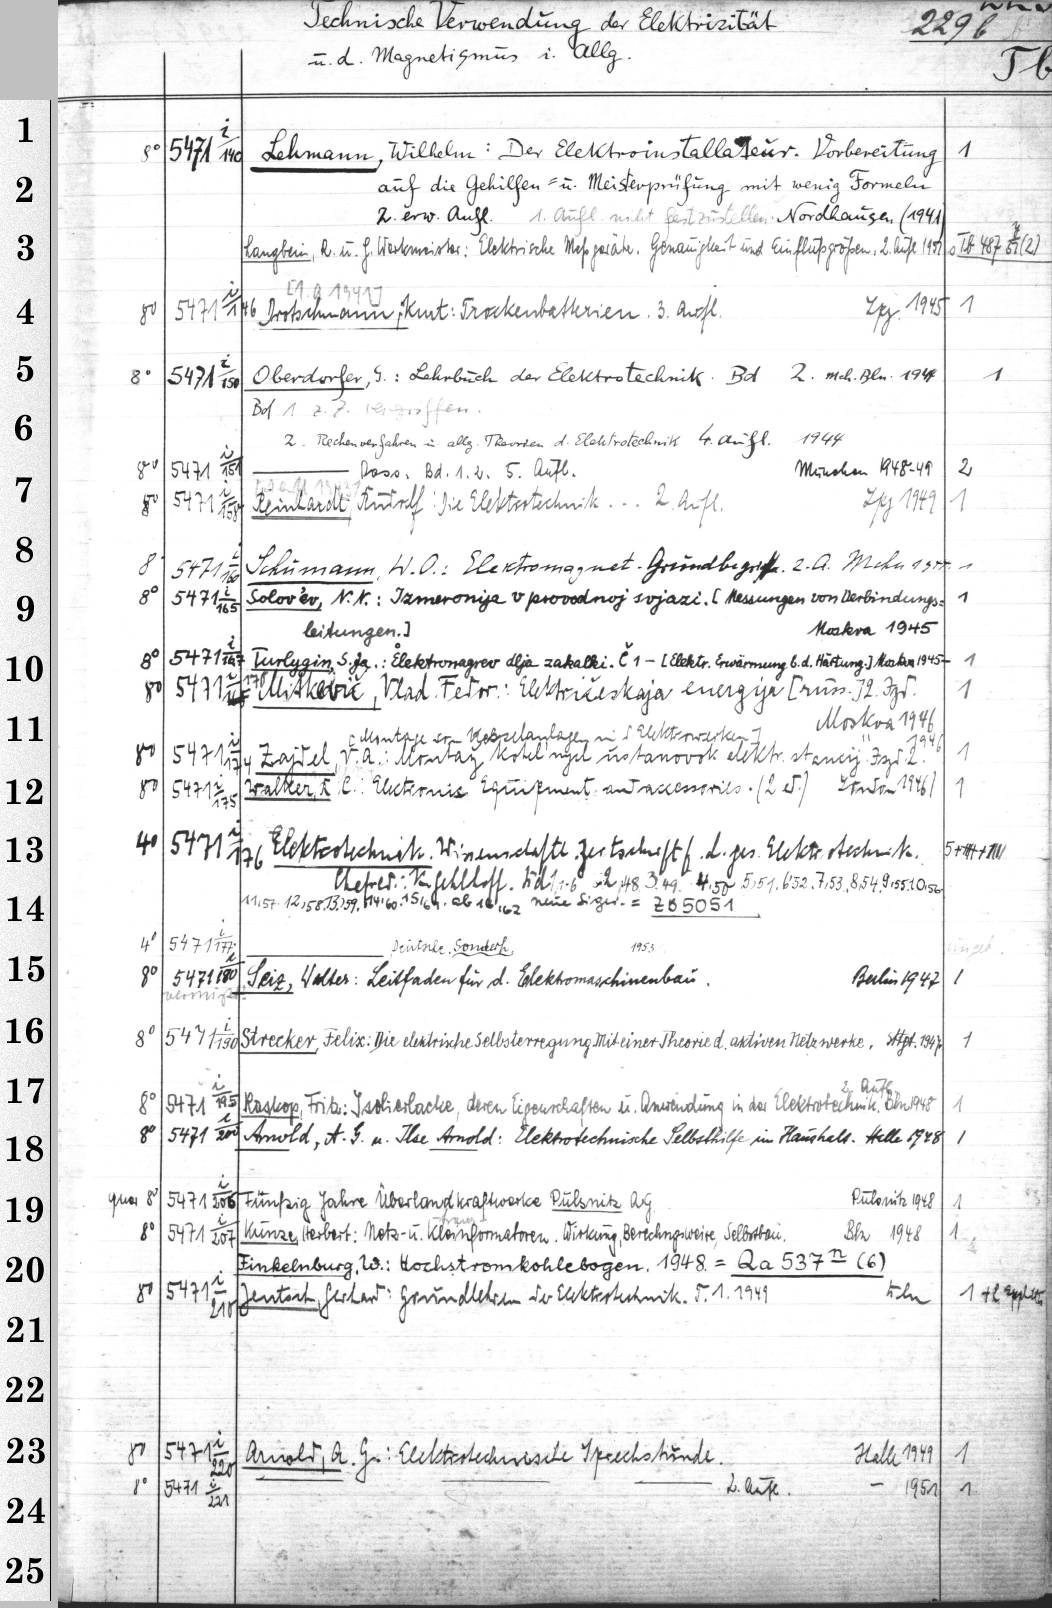 Technische Verwendung der Elektrizität 229 b
u. d. Magnetismus i. Allg. Tb
1
8° 5471 i/140 Lehmann, Wilhelm: Der Elektroinstallateur. Vorbereitung 1
2
auf die Gehilfen= u. Meisterprüfung mit wenig Formeln
2. erw. Aufl. 1. Aufl. nicht festzustellen. Nordhausen (1941)
3
Langbein, R. u. G. Werkmeister: Elektrische Meßgeräte. Genauigkeit und Einflußgrößen. 2. Aufl. s Tb 487 (2)
[1. A 1941]
4
8° 5471 i/146 Drotschmann, Kurt: Trockenbatterien. 3. Aufl. Lpz. 1945 1
5
8° 5471 i/150 Oberdorfer, G.: Lehrbuch der Elektrotechnik. Bd 2. Mch. Bln. 1944 1
Bd 1 z. Z. vergriffen.
6
2. Rechenverfahren u allg. Theorien d. Elektrotechnik 4. Aufl. 1944
8° 5471 i/151 Dass. Bd. 1. 2. 5. Aufl. München 1948-49 2
7
8° 5471 i/158 Reinhardt, Rudolf: Die Elektrotechnik ... 2. Aufl. Lpz 1949 1
8
8° 5471 i/160 Schumann, W. O.: Elektromagnet. Grundbegriffe. 2. A. Mchn 1
9
8° 5471 i/165 Solov'ev, N. N.: Izmerenija v provodnoj svjazi. [Messungen von Verbindungs= 1
leitungen.] Moskva 1945
10
8° 5471 i/167 Turlygin, S. Ja.: Elektronagrev dlja zakalki. Č 1 – [Elektr. Erwärmung b. d. Härtung.] Moskva 1945– 1
8° 5471 i/170 Mitkevič, Vlad. Fedor.: Električeskaja energija [russ.] 2. Izd. 1
11
Moskva 1946
[Montage von Kesselanlagen in Elektrowerken]
8° 5471 i/174 Zajdel, V. A.: Montaž kotel'nych ustanovok elektr. stancij. Izd. 2. 1946 1
12
8° 5471 i/175 Walker, R. C.: Electronic Equipment and accessories. (2 ed.) London 1946) 1
13
4° 5471 i/176 Elektrotechnik. Wissenschaftl. Zeitschrift f. d. ges. Elektrotechnik.
Chefred.: K. Fehlhoff. Bd 1,1-6 2,48. 3,49. 4,50 5,51. 6,52. 7,53. 8,54. 9,55. 10,56
14
11,57. 12,58. 13,59. 14,60. 15,61. ab 16,62 neue Signr. = ZB 5051
4° 5471 i/177 Deutsche Sonderh. 1953
15
8° 5471 i/180 Seiz, Walter: Leitfaden für d. Elektromaschinenbau. Berlin 1947 1
vermißt
16
8° 5471 i/190 Strecker, Felix: Die elektrische Selbsterregung Mit einer Theorie d. aktiven Netzwerke. Sttgt. 1947 1
17
2. Aufl.
8° 5471 i/195 Raskop, Fritz: Isolierlacke, deren Eigenschaften u. Anwendung in der Elektrotechnik. Bln 1948 1
18
8° 5471 i/200 Arnold, A. G. u. Ilse Arnold: Elektrotechnische Selbsthilfe im Haushalt. Halle 1948 1
19
quer 8° 5471 i/206 Fünfzig Jahre Überlandkraftwerke Pulsnitz AG Pulsnitz 1948 1
8° 5471 i/207 Kunze, Herbert: Netz- u. Kleintransformatoren. Wirkung, Berechngsweise, Selbstbau. Bln 1948 1
20
Finkelnburg, W.: Hochstromkohlebogen. 1948. = Qa 537 n (6)
8° 5471 i/210 Jentsch, Gerhard: Grundlehren der Elektrotechnik. T. 1. 1949 Bln 1
21
22
23
8° 5471 i/220 Arnold, A. G.: Elektrotechnische Sprechstunde. Halle 1949 1
8° 5471 i/221 2. Aufl. – 1951 1
24
25